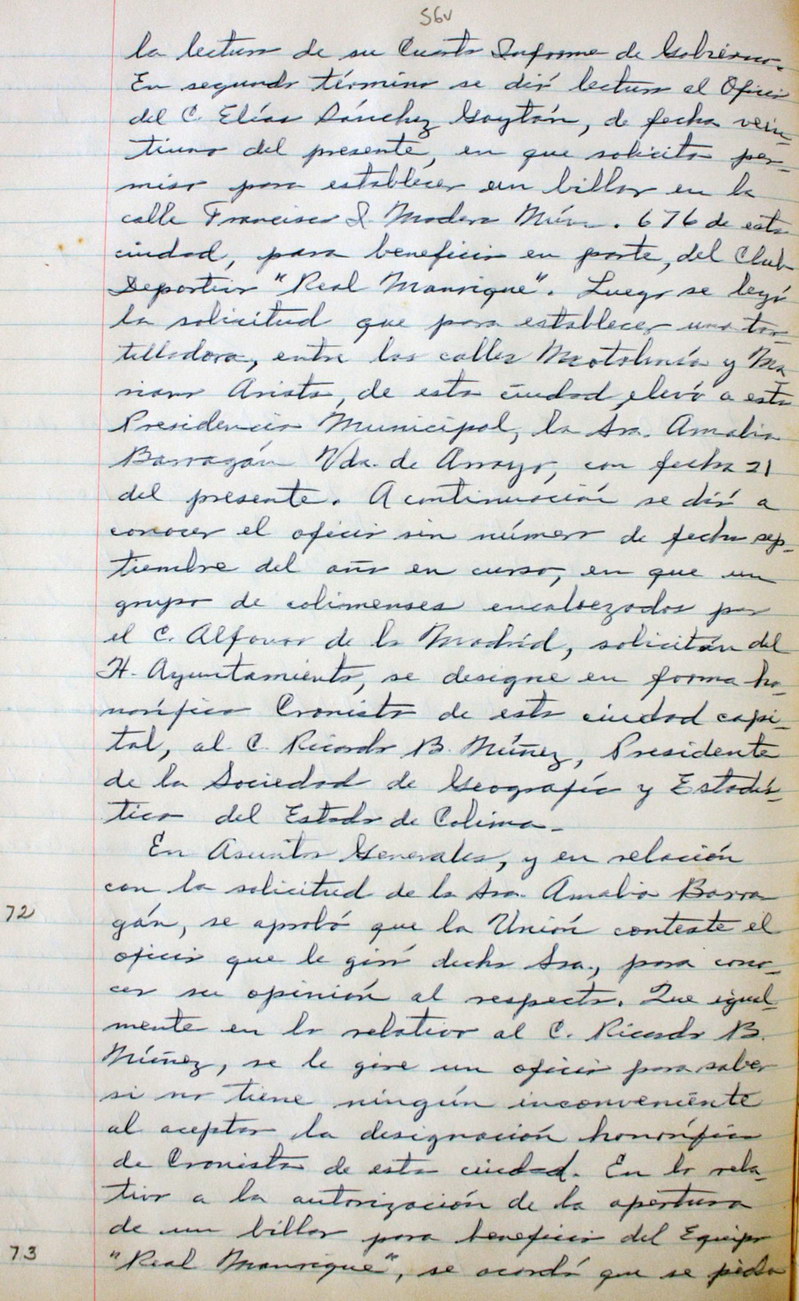 56v
la lectura de su Cuarto Informe de Gobierno.
En segundo término se dió lectura al Oficio
del C. Elías Sánchez Gaytán, de fecha vein-
tiuno del presente, en que solicita per-
miso para establecer un billar en la
calle Francisco I. Madero Núm. 676 de esta
ciudad, para beneficio en parte, del Club
Deportivo "Real Manrique". Luego se leyó
la solicitud que para establecer una tor-
tilladora, entre las calles Motolinía y Ma-
riano Arista, de esta ciudad elevó a esta
Presidencia Municipal, la Sra. Amalia
Barragán Vda. de Arroyo, con fecha 21
del presente. A continuación se dió a
conocer el oficio sin número de fecha sep-
tiembre del año en curso, en que un
grupo de colimenses encabezados por
el C. Alfonso de la Madrid, solicitan del
H. Ayuntamiento, se designe en forma ho-
norífica Cronista de esta ciudad capi-
tal, al C. Ricardo B. Núñez, Presidente
de la Sociedad de Geografía y Estadís-
tica del Estado de Colima.
En Asuntos Generales, y en relación
con la solicitud de la Sra. Amalia Barra
72 gán, se aprobó que la Unión conteste el
oficio que le giró dicha Sra., para cono-
cer su opinión al respecto. Que igual-
mente en lo relativo al C. Ricardo B.
Núñez, se le gire un oficio para saber
si no tiene ningún inconveniente
al aceptar la designación honorífica
de Cronista de esta ciudad. En lo rela-
tivo a la autorización de la apertura
de un billar para beneficio del Equipo
73 "Real Manrique", se acordó que se pida